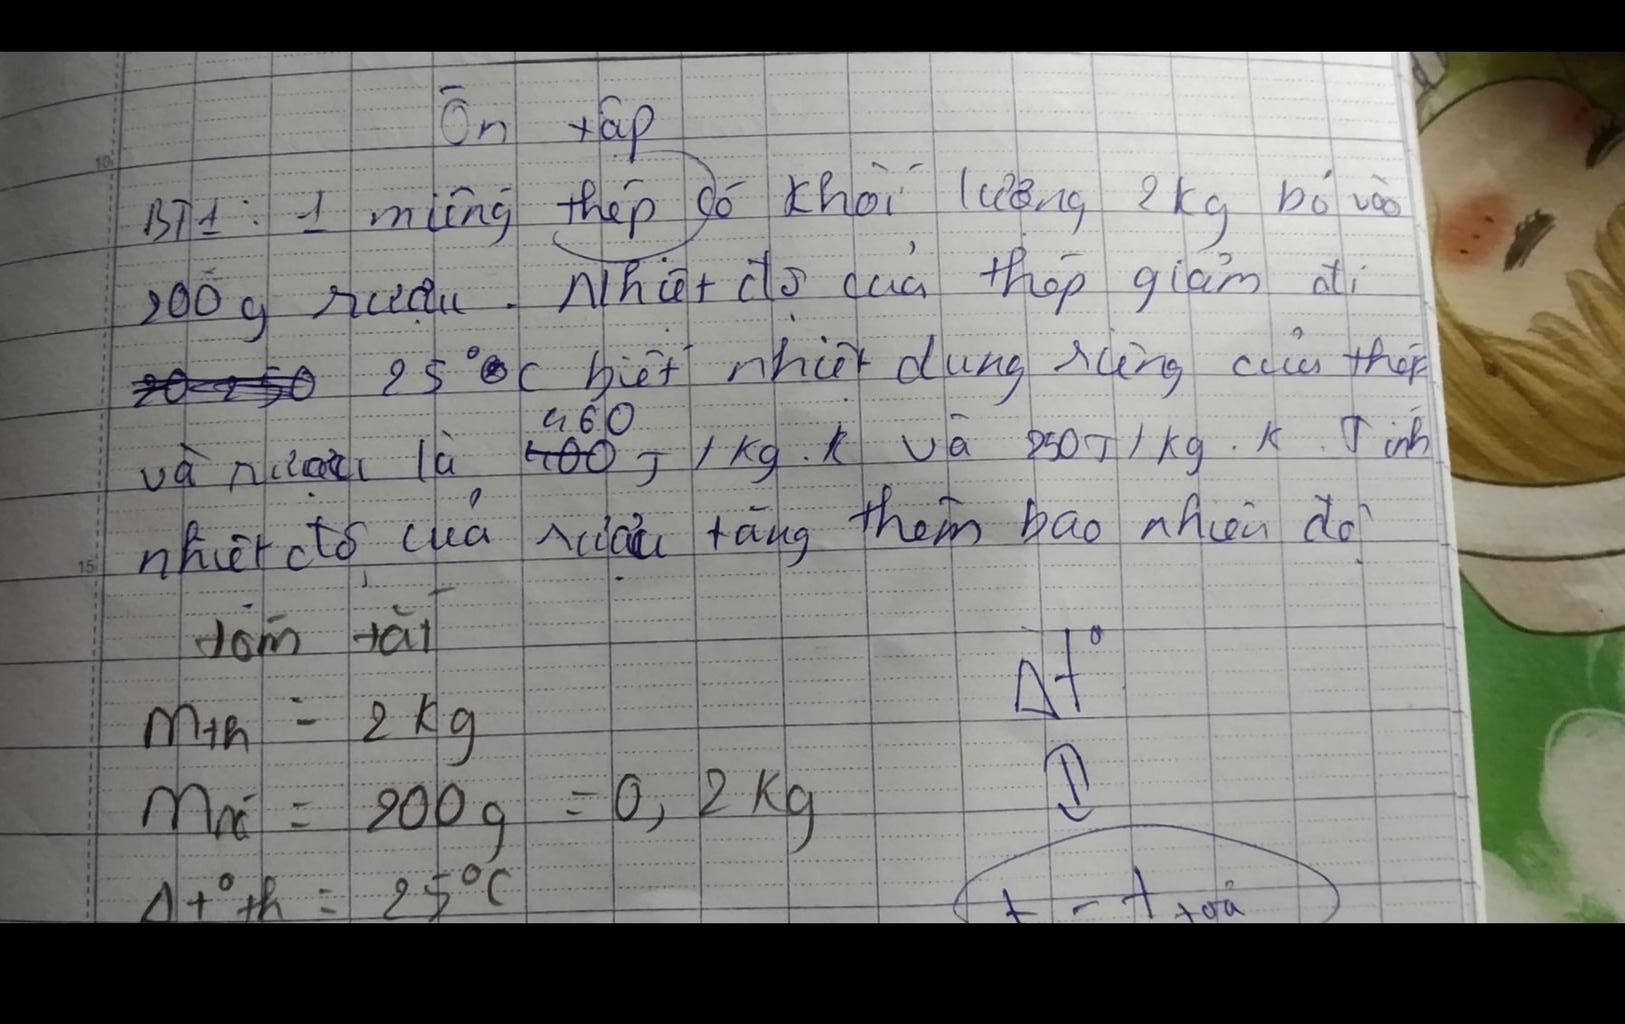 Ôn tập
BT1: 1 miếng thép có khối lượng 2kg bỏ vào
200g rượu. Nhiệt độ của thép giảm đi
25°C biết nhiệt dung riêng của thép
460
và rượu là 400 J/kg.k và 250J/kg.K. Tính
nhiệt độ của rượu tăng thêm bao nhiêu độ
tóm tắt
Δt°
mth = 2kg
mr = 200g = 0,2kg
Δt°th = 25°C
t - t toả
10
15